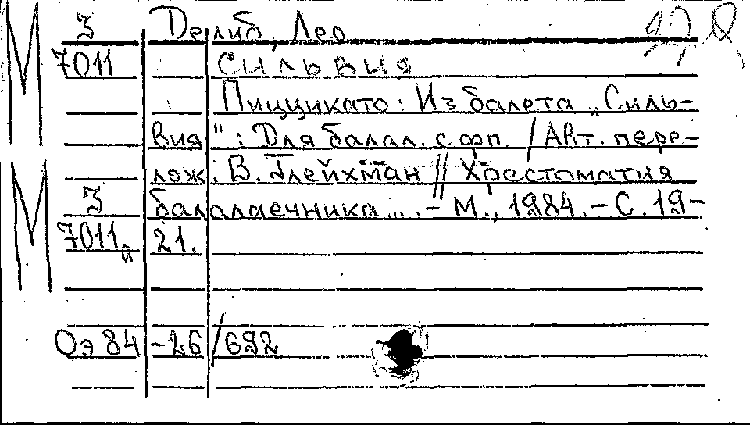 М З Делиб, Лео
7011 Сильвия
Пиццикато: Из балета „Силь-
вия": Для балал. с фп. / Авт. пере-
лож. В. Глейхман // Хрестоматия
М З балалаечника... .- М., 1984. - С. 19-
7011д 21.
Оэ 84 - 26/692